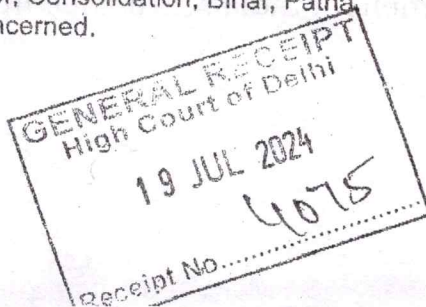 Consolidation, Bihar, Patna
ncerned.
GENERAL RECEIPT
High Court of Delhi
19 JUL 2024
4075
Receipt No..................